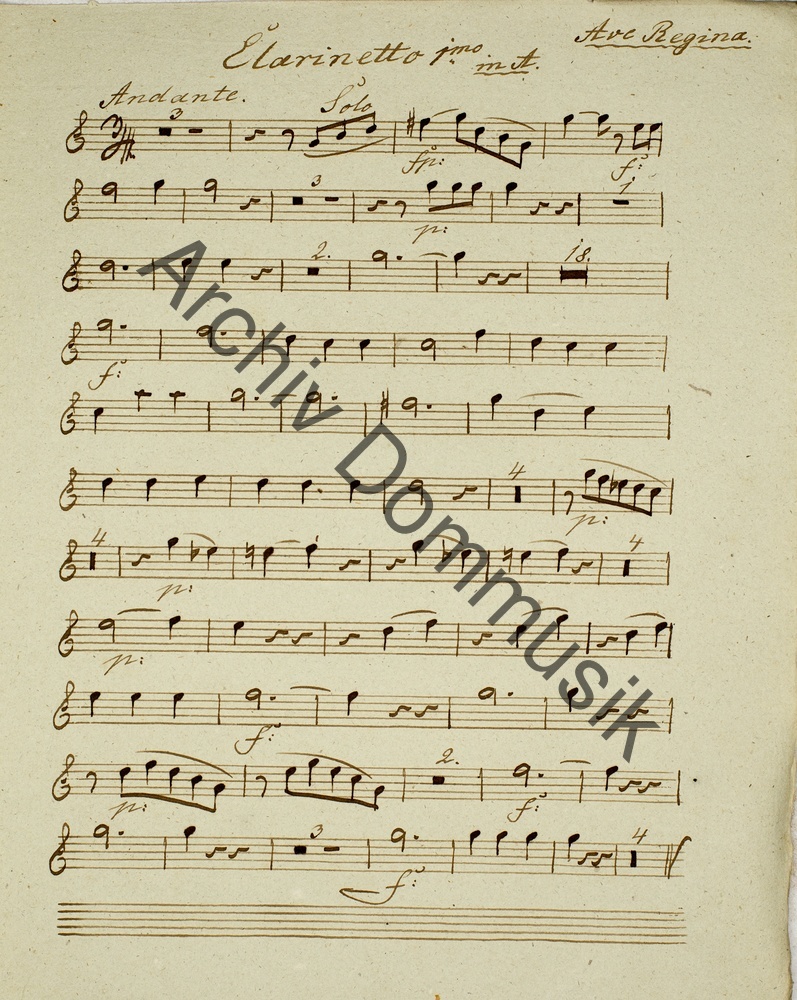 Ave Regina.
Clarinetto jmo in A.
Andante.
3 Solo
fp: f:
3 1
p:
2. 18.
f:
4
p:
4 4
p:
p:
f:
2.
p: f:
3 4
f:
Archiv Dommusik